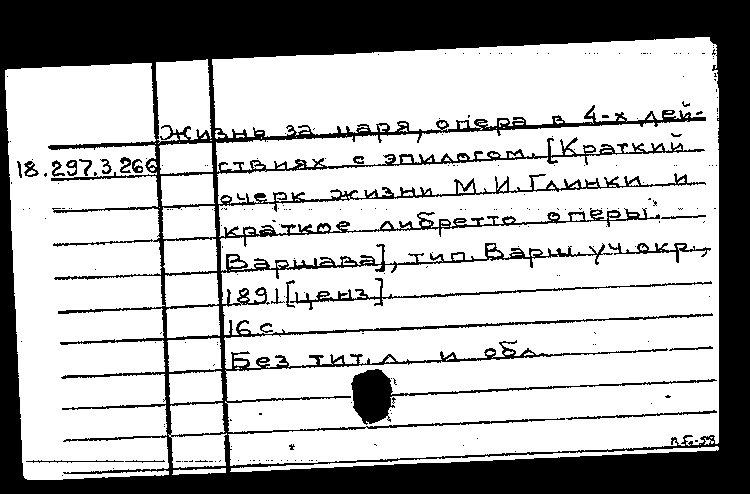 Жизнь за царя, опера в 4-х дей-
18.297.3.266 ствиях с эпилогом. [Краткий
очерк жизни М.И.Глинки и
краткое либретто оперы.
Варшава], тип. Варш. уч. окр.,
1891 [ценз].
16 с.
Без тит. л. и обл.